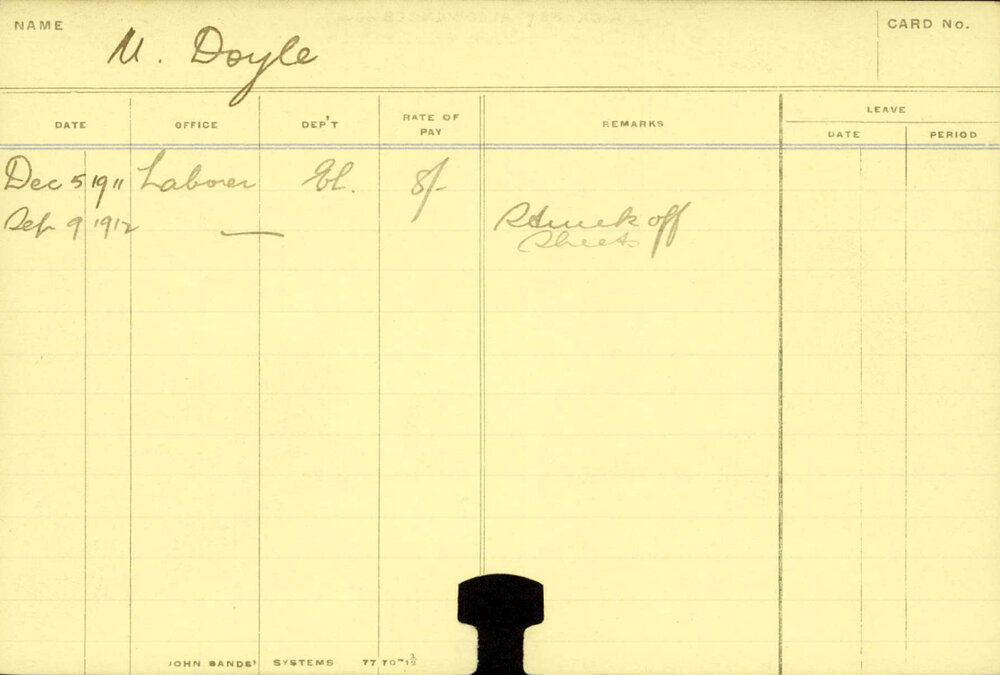 NAME
M. Doyle
CARD No.
DATE
OFFICE
DEP'T
RATE OF PAY
REMARKS
LEAVE
DATE
PERIOD
Dec 5 1911 Laborer El. 8/-
Sep 9 1912 — Struck off
Sheets
JOHN SANDS' SYSTEMS